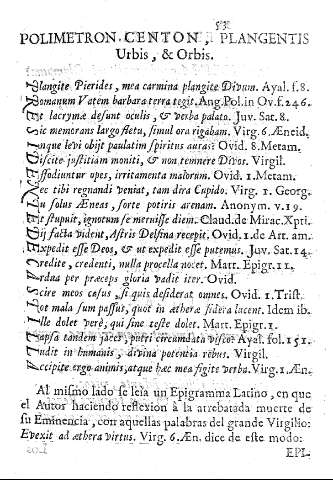 POLIMETRON CENTON, PLANGENTIS
Urbis, & Orbis.
Plangite Pierides, mea carmina plangite Divum. Ayal. f.8.
Romanum Vatem barbara terra tegit. Ang.Pol.in Ov.f.246.
Et lacrymæ desunt oculis, & verba palato. Juv. Sat.8.
Sic memorans largo fletu, simul ora rigabam. Virg.6.Æneid.
Inque levi obijt paulatim spiritus auras. Ovid 8.Metam.
Discite justitiam moniti, & non temnere Divos. Virgil.
Effodiuntur opes, irritamenta malorum. Ovid. 1.Metam.
Nec tibi regnandi veniat, tam dira Cupido. Virg. 1. Georg.
Tu solus Æneas, forte potiris arenam. Anonym. v.19.
Et stupuit, ignotum se meruisse diem. Claud.de Mirac.Xpti.
Dij facta vident, Astris Delfina recepit. Ovid.1.de Art. am.
Expedit esse Deos, & ut expedit esse putemus. Juv. Sat.14.
Credite, credenti, nulla procella nocet. Mart. Epigr.11.
Ardua per præceps gloria vadit iter. Ovid.
Discite meos casus, si quis desiderat omnes. Ovid. 1.Trist.
Tot mala sum passus, quot in æthere sidera lucent. Idem ib.
Ille dolet verè, qui sine teste dolet. Mart. Epigr.1.
Lapsa tandem jacet, putri circumdata visco. Ayal. fol.151.
Ludit in humanis, divina potentia rebus. Virgil.
Accipite ergo animis, atque hæc mea figite verba. Virg.1.Æn.
Al mismo lado se leìa un Epigramma Latino, en que
el Autor haciendo reflexion à la atrebatada muerte de
su Eminencia, con aquellas palabras del grande Virgilio:
Evexit ad æthera virtus. Virg. 6.Æn. dice de este modo:
EPI-